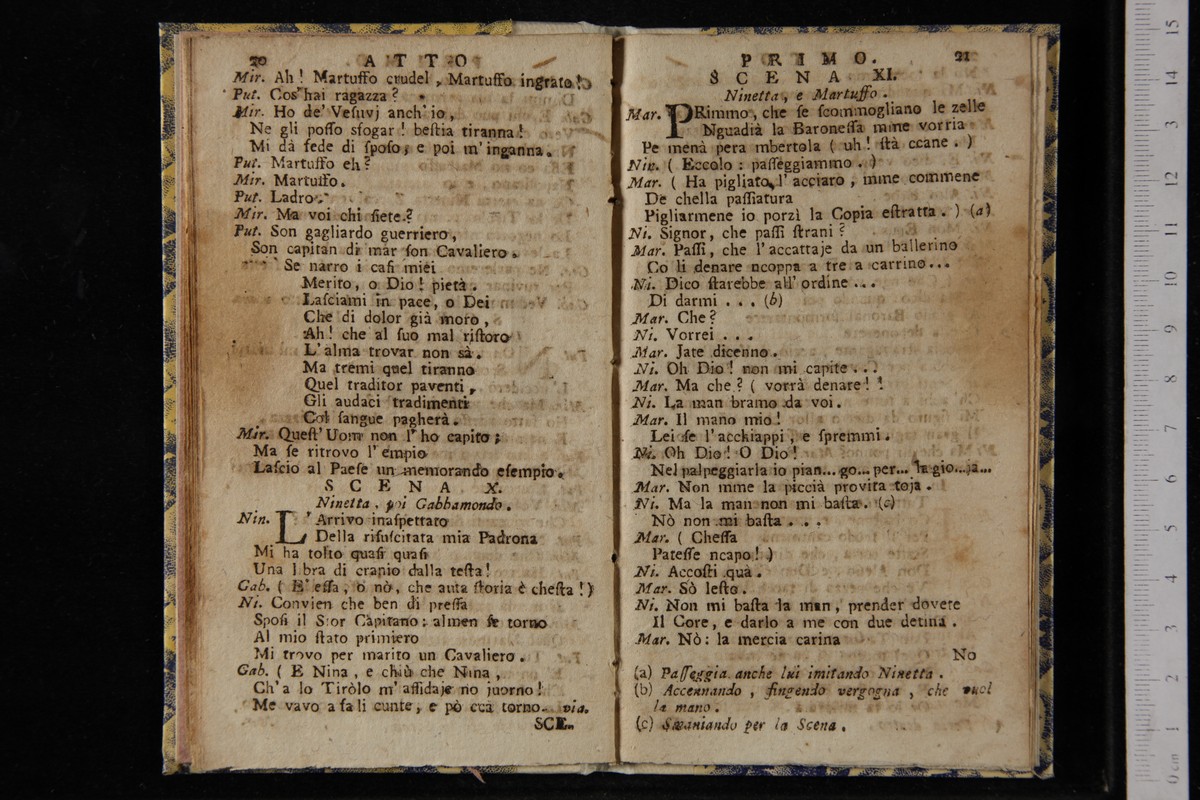 20 ATTO
Mir. Ah! Martuffo crudel, Martuffo ingrato!
Put. Cos'hai ragazza?
Mir. Ho de' Veſuvj anch'io,
Ne gli poſſo sfogar! beſtia tiranna!
Mi dà fede di ſpoſo, e poi m'inganna.
Put. Martuffo eh?
Mir. Martuffo.
Put. Ladro.
Mir. Ma voi chi ſiete?
Put. Son gagliardo guerriero,
Son capitan di mar ſon Cavaliero.
Se narro i caſi miei
Merito, o Dio! pietà.
Laſciami in pace, o Dei
Che di dolor già moro,
Ah! che al ſuo mal riſtoro
L'alma trovar non sà.
Ma tremi quel tiranno
Quel traditor paventi,
Gli audaci tradimenti
Col ſangue pagherà.
Mir. Queſt'Uom non l'ho capito;
Ma ſe ritrovo l'empio
Laſcio al Paeſe un memorando eſempio.
SCENA X.
Ninetta, poi Gabbamondo.
Nin. L'Arrivo inaſpettato
Della riſuſcitata mia Padrona
Mi ha tolto quaſi quaſi
Una libra di cranio dalla teſta!
Gab. ( E' eſſa, o nò, che auta ſtoria è cheſta!)
Ni. Convien che ben di preſſa
Spoſi il Sior Capitano: almen ſe torno
Al mio ſtato primiero
Mi trovo per marito un Cavaliero.
Gab. ( E Nina, e chiù che Nina,
Ch'a lo Tiròlo m'affidaje no juorno!
Me vavo a fa li cunte, e pò ccà torno. via.
SCE-
PRIMO. 21
SCENA XI.
Ninetta, e Martuffo.
Mar. PRimmo, che ſe ſcommogliano le zelle
Nguadià la Baroneſſa mme vorria
Pe menà pera mbertola ( uh! ſtà ccane. )
Nin. ( Eccolo: paſſeggiammo. )
Mar. ( Ha pigliato l'acciaro, mme commene
De chella paſſiatura
Pigliarmene io porzì la Copia eſtratta. ) (a)
Ni. Signor, che paſſi ſtrani?
Mar. Paſſi, che l'accattaje da un ballerino
Co li denare ncoppa a tre a carrino...
Ni. Dico ſtarebbe all'ordine...
Di darmi ... (b)
Mar. Che?
Ni. Vorrei ...
Mar. Jate dicenno.
Ni. Oh Dio! non mi capite ...
Mar. Ma che? ( vorrà denare! !
Ni. La man bramo da voi.
Mar. Il mano mio!
Lei ſe l'acchiappi, e ſpremmi.
Ni. Oh Dio! O Dio!
Nel palpeggiarla io pian... go... per... la gio...ja...
Mar. Non mme la piccià provita toja.
Ni. Ma la man non mi baſta. (c)
Nò non mi baſta ...
Mar. ( Cheſſa
Pateſſe ncapo! )
Ni. Accoſti quà.
Mar. Sò leſto.
Ni. Non mi baſta la man, prender dovete
Il Core, e darlo a me con due detina.
Mar. Nò: la mercia carina
No
(a) Paſſeggia anche lui imitando Ninetta.
(b) Accennando, fingendo vergogna, che vuol
la mano.
(c) Smaniando per la Scena.
15
14
13
12
11
10
9
8
7
6
5
4
3
2
1
0 cm